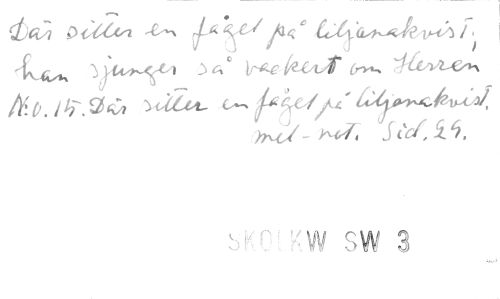 Där sitter en fågel på liljanakvist,
han sjunger så vackert om Herren
N:o. 15. Där sitter en fågel på liljanakvist.
mel-not. Sid. 29.
SKOLKW SW 3